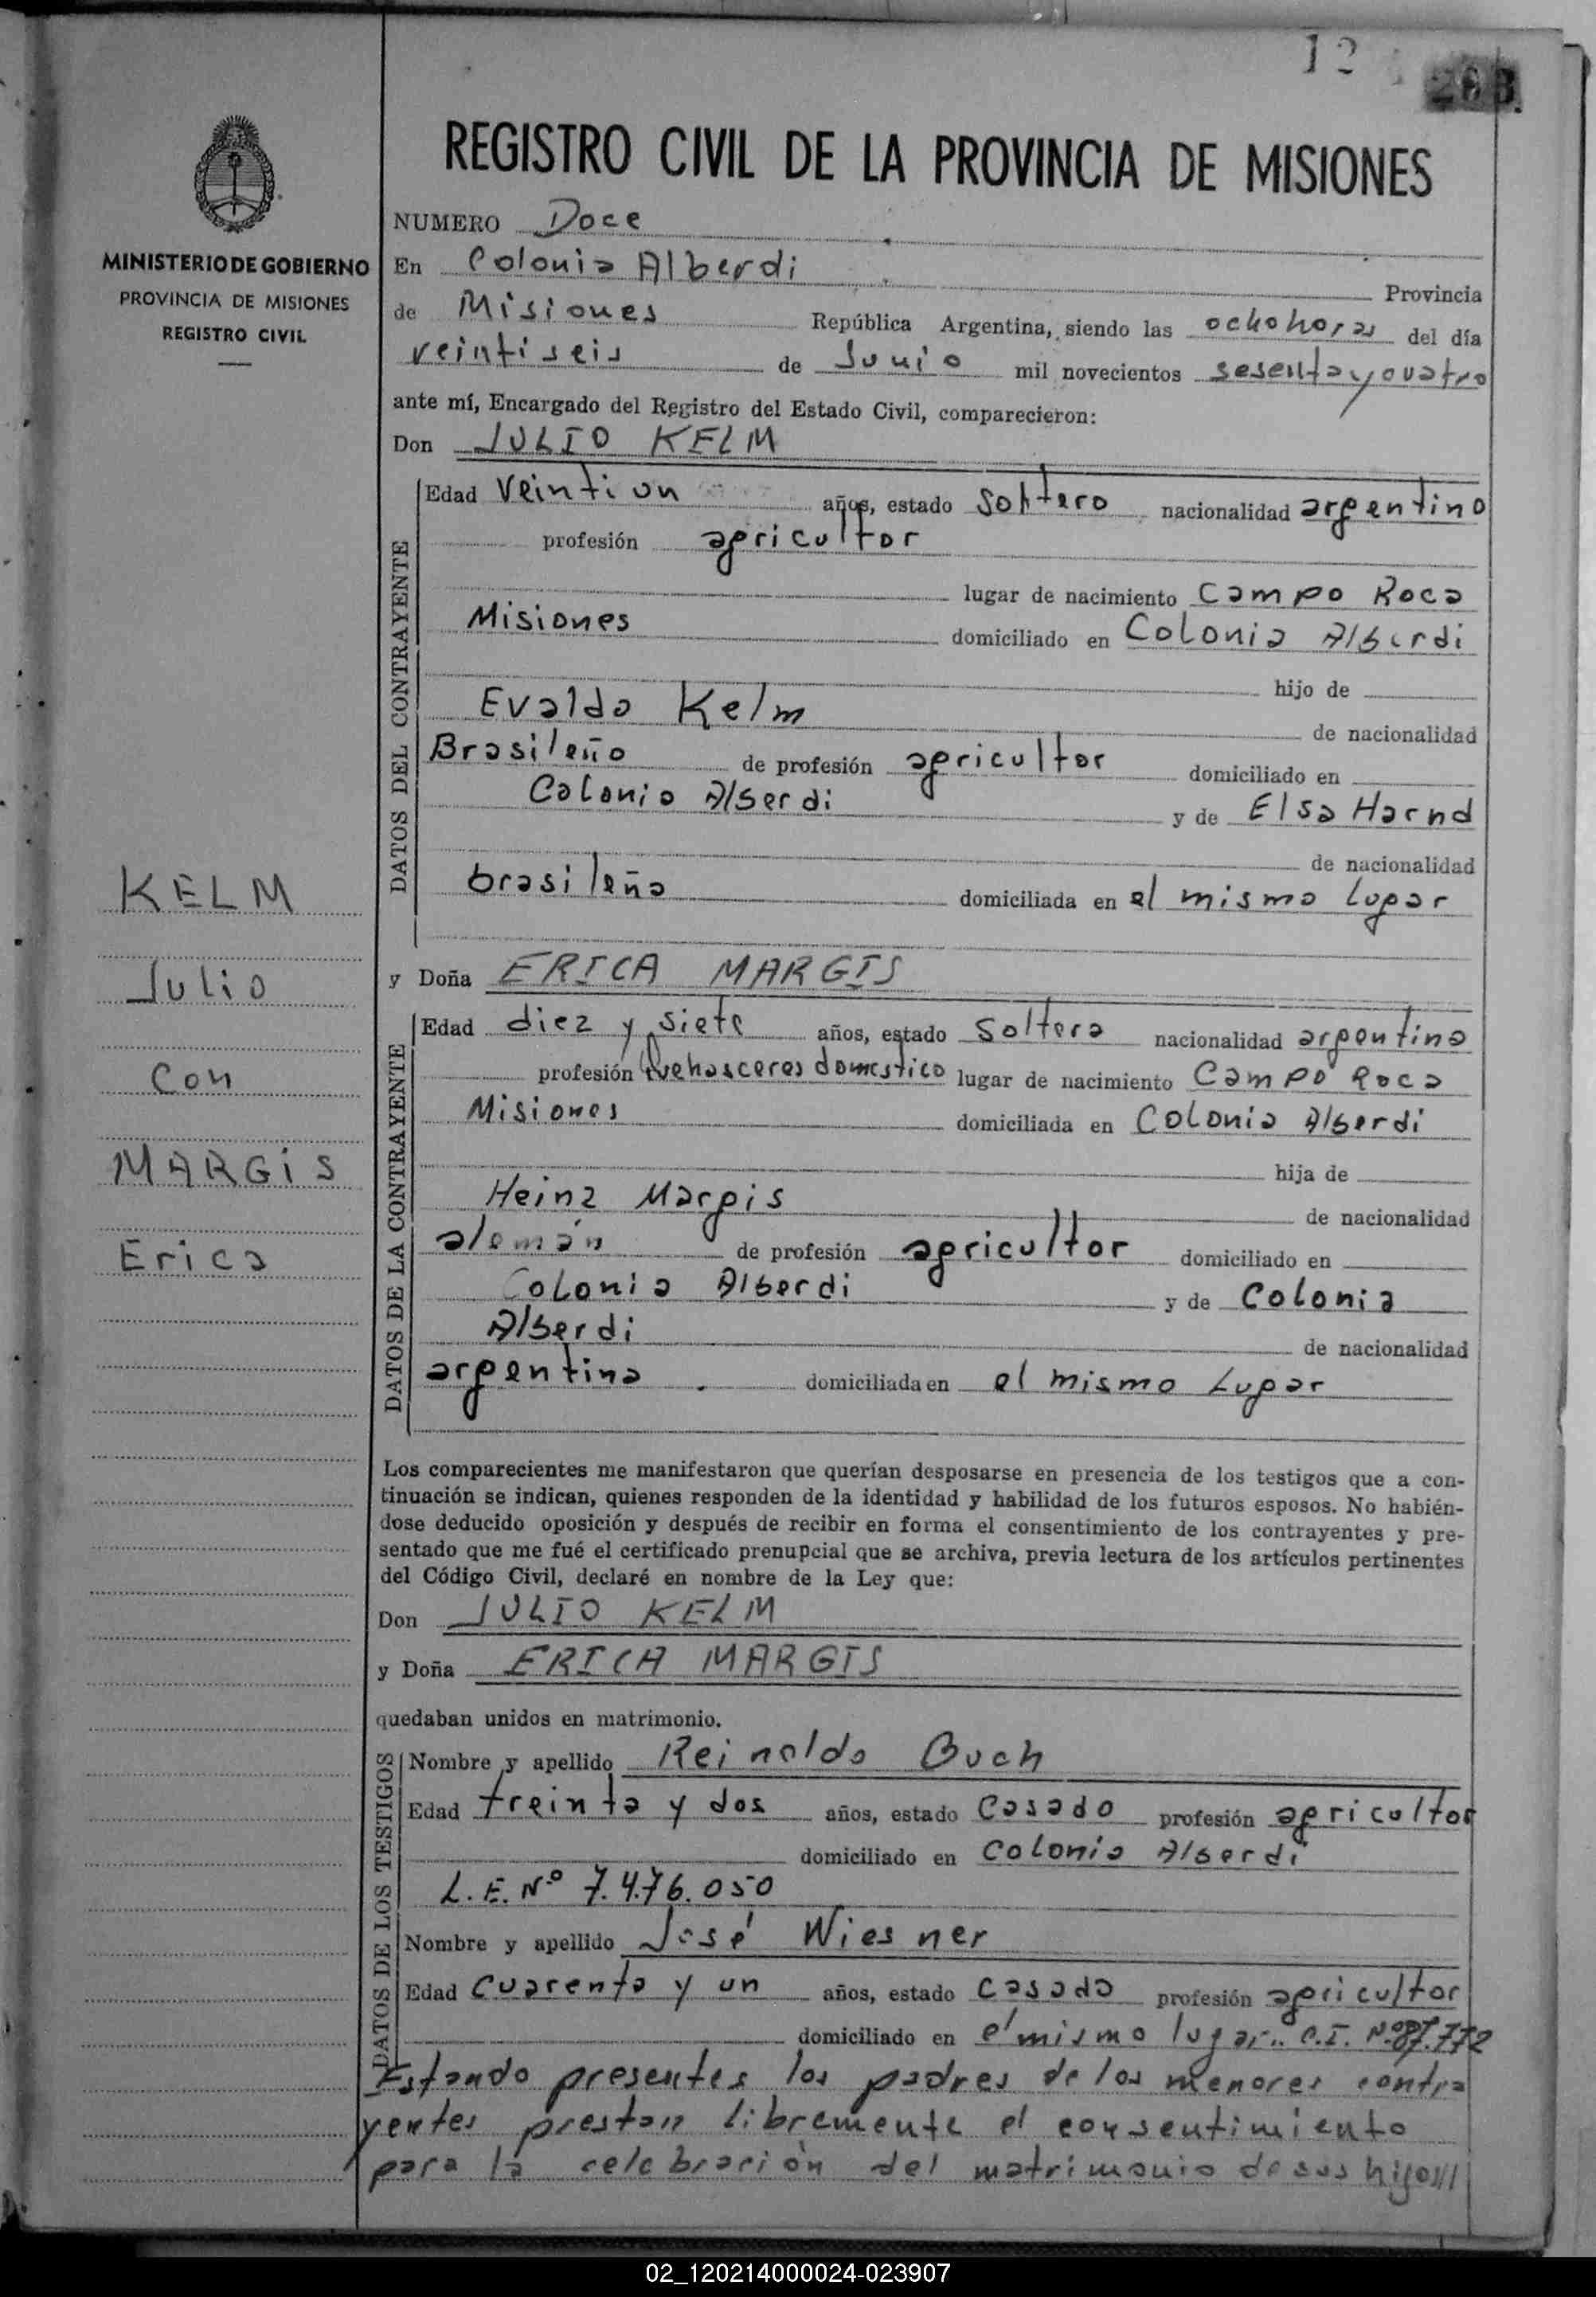 12
268.
REGISTRO CIVIL DE LA PROVINCIA DE MISIONES
MINISTERIO DE GOBIERNO
PROVINCIA DE MISIONES
REGISTRO CIVIL
NUMERO Doce
En Colonia Alberdi
Provincia
de Misiones República Argentina, siendo las ocho horas del día
veintiseis de Junio mil novecientos sesenta y cuatro
ante mí, Encargado del Registro del Estado Civil, comparecieron:
Don JULIO KELM
DATOS DEL CONTRAYENTE
Edad Veintiun años, estado Soltero nacionalidad argentino
profesión agricultor
lugar de nacimiento Campo Roca
Misiones domiciliado en Colonia Alberdi
hijo de
Evaldo Kelm
de nacionalidad
Brasileño de profesión agricultor domiciliado en
Colonia Alberdi y de Elsa Harnd
de nacionalidad
brasileña domiciliada en el mismo Lugar
KELM
Julio
con
MARGIS
Erica
y Doña ERICA MARGIS
DATOS DE LA CONTRAYENTE
Edad diez y siete años, estado Soltera nacionalidad argentina
profesión Quehasceres domestico lugar de nacimiento Campo Roca
Misiones domiciliada en Colonia Alberdi
hija de
Heinz Margis
de nacionalidad
alemán de profesión agricultor domiciliado en
Colonia Alberdi y de Colonia
Alberdi
de nacionalidad
argentina domiciliada en el mismo Lugar
Los comparecientes me manifestaron que querían desposarse en presencia de los testigos que a con-
tinuación se indican, quienes responden de la identidad y habilidad de los futuros esposos. No habién-
dose deducido oposición y después de recibir en forma el consentimiento de los contrayentes y pre-
sentado que me fué el certificado prenupcial que se archiva, previa lectura de los artículos pertinentes
del Código Civil, declaré en nombre de la Ley que:
Don JULIO KELM
y Doña ERICA MARGIS
quedaban unidos en matrimonio.
DATOS DE LOS TESTIGOS
Nombre y apellido Reinoldo Buch
Edad treinta y dos años, estado Casado profesión agricultor
domiciliado en Colonia Alberdi
L.E. Nº 7.476.050
Nombre y apellido José Wiesner
Edad Cuarenta y un años, estado Casado profesión agricultor
domiciliado en el mismo lugar.. C.I. Nº 87.772
Estando presentes los padres de los menores contra
yentes prestan libremente el consentimiento
para la celebración del matrimonio de sus hijos///
02_120214000024-023907